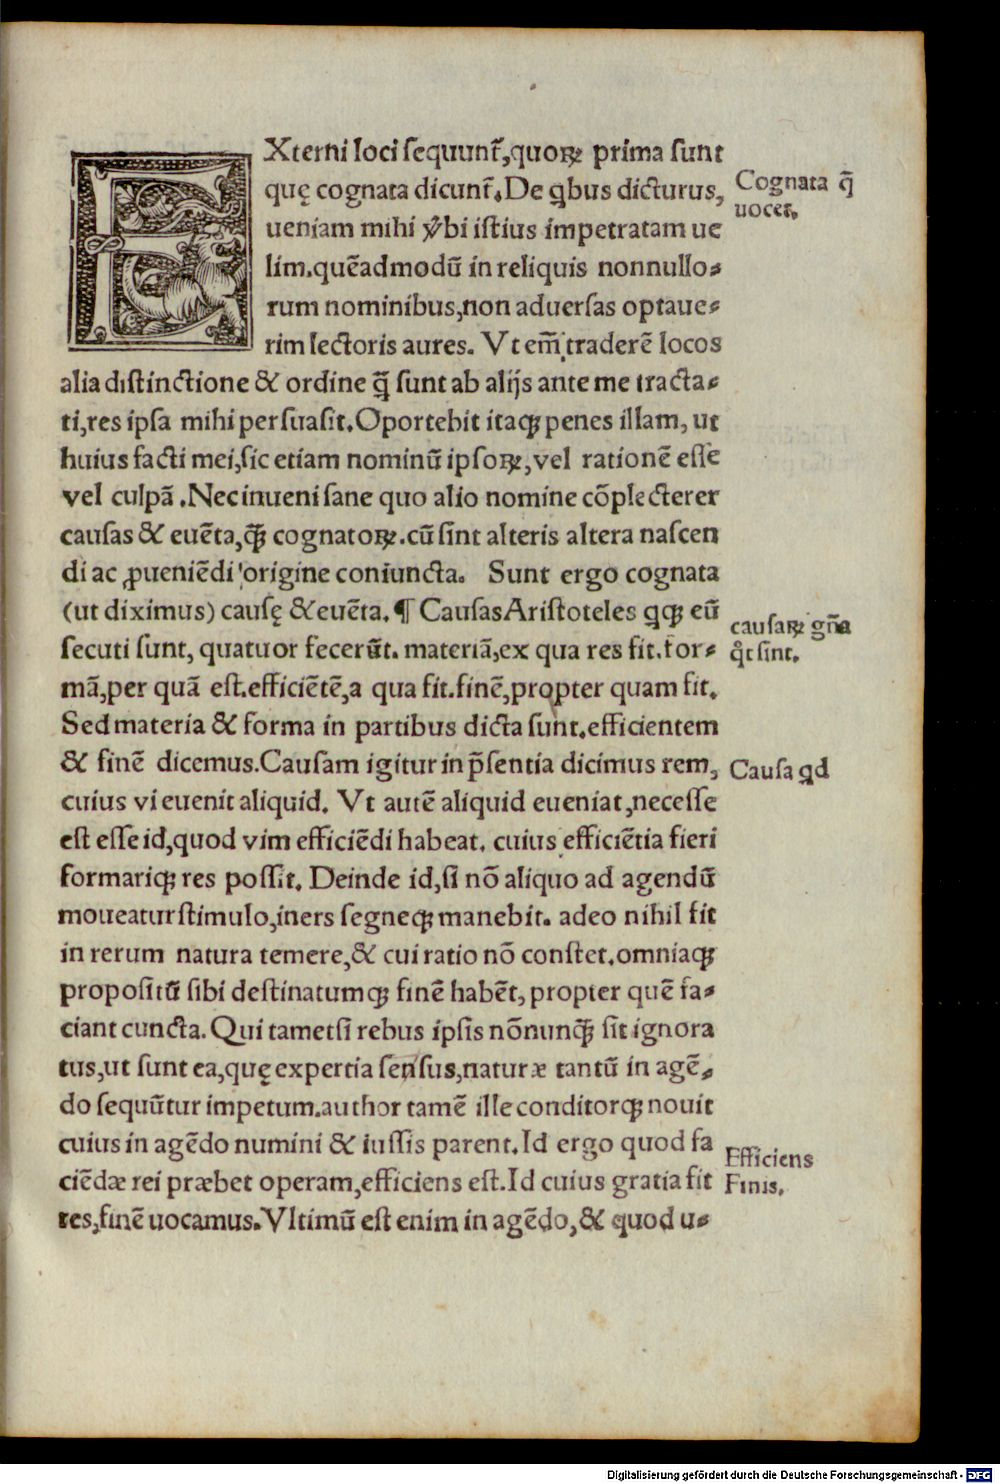 EXterni loci sequunt̃, quoꝝ prima sunt
quę cognata dicunt̃. De qbus dicturus,
ueniam mihi v̉bi istius impetratam ue
lim. quēadmodū in reliquis nonnullo⸗
rum nominibus, non aduersas optaue⸗
rim lectoris aures. Vt em̄ traderē locos
alia distinctione & ordine q̄ȝ sunt ab alijs ante me tracta⸗
ti, res ipsa mihi persuasit. Oportebit itaqȝ penes illam, ut
huius facti mei, sic etiam nominū ipsoꝝ, vel rationē esse
vel culpā. Nec inueni sane quo alio nomine cōplecterer
causas & evēta, q̄ȝ cognatoꝝ. cū sint alteris altera nascen
di ac ꝓueniēdi origine coniuncta. Sunt ergo cognata
(ut diximus) causę & evēta. ¶ Causas Aristoteles qqȝ eū
secuti sunt, quatuor fecerūt. materiā, ex qua res fit. for⸗
mā, per quā est. efficiētē, a qua fit. finē, propter quam fit.
Sed materia & forma in partibus dicta sunt. efficientem
& finē dicemus. Causam igitur in p̄sentia dicimus rem,
cuius vi euenit aliquid. Vt autē aliquid eueniat, necesse
est esse id, quod vim efficiēdi habeat. cuius efficiētia fieri
formariqȝ res possit. Deinde id, si nō aliquo ad agendū
moueatur stimulo, iners segneqȝ manebit. adeo nihil fit
in rerum natura temere, & cui ratio nō constet. omniaqȝ
propositū sibi destinatumqȝ finē habēt, propter quē fa⸗
ciant cuncta. Qui tametsi rebus ipsis nōnunq̄ȝ sit ignora
tus, ut sunt ea, quę expertia sensus, naturæ tantū in agē⸗
do sequūtur impetum. author tamē ille conditorqȝ nouit
cuius in agēdo numini & iussis parent. Id ergo quod fa
ciēdæ rei præbet operam, efficiens est. Id cuius gratia fit
res, finē uocamus. Vltimū est enim in agēdo, & quod u⸗
Cognata q̄
uocet.
causaꝝ gña
qt sint.
Causa qd
Efficiens
Finis.
Digitalisierung gefördert durch die Deutsche Forschungsgemeinschaft - DFG